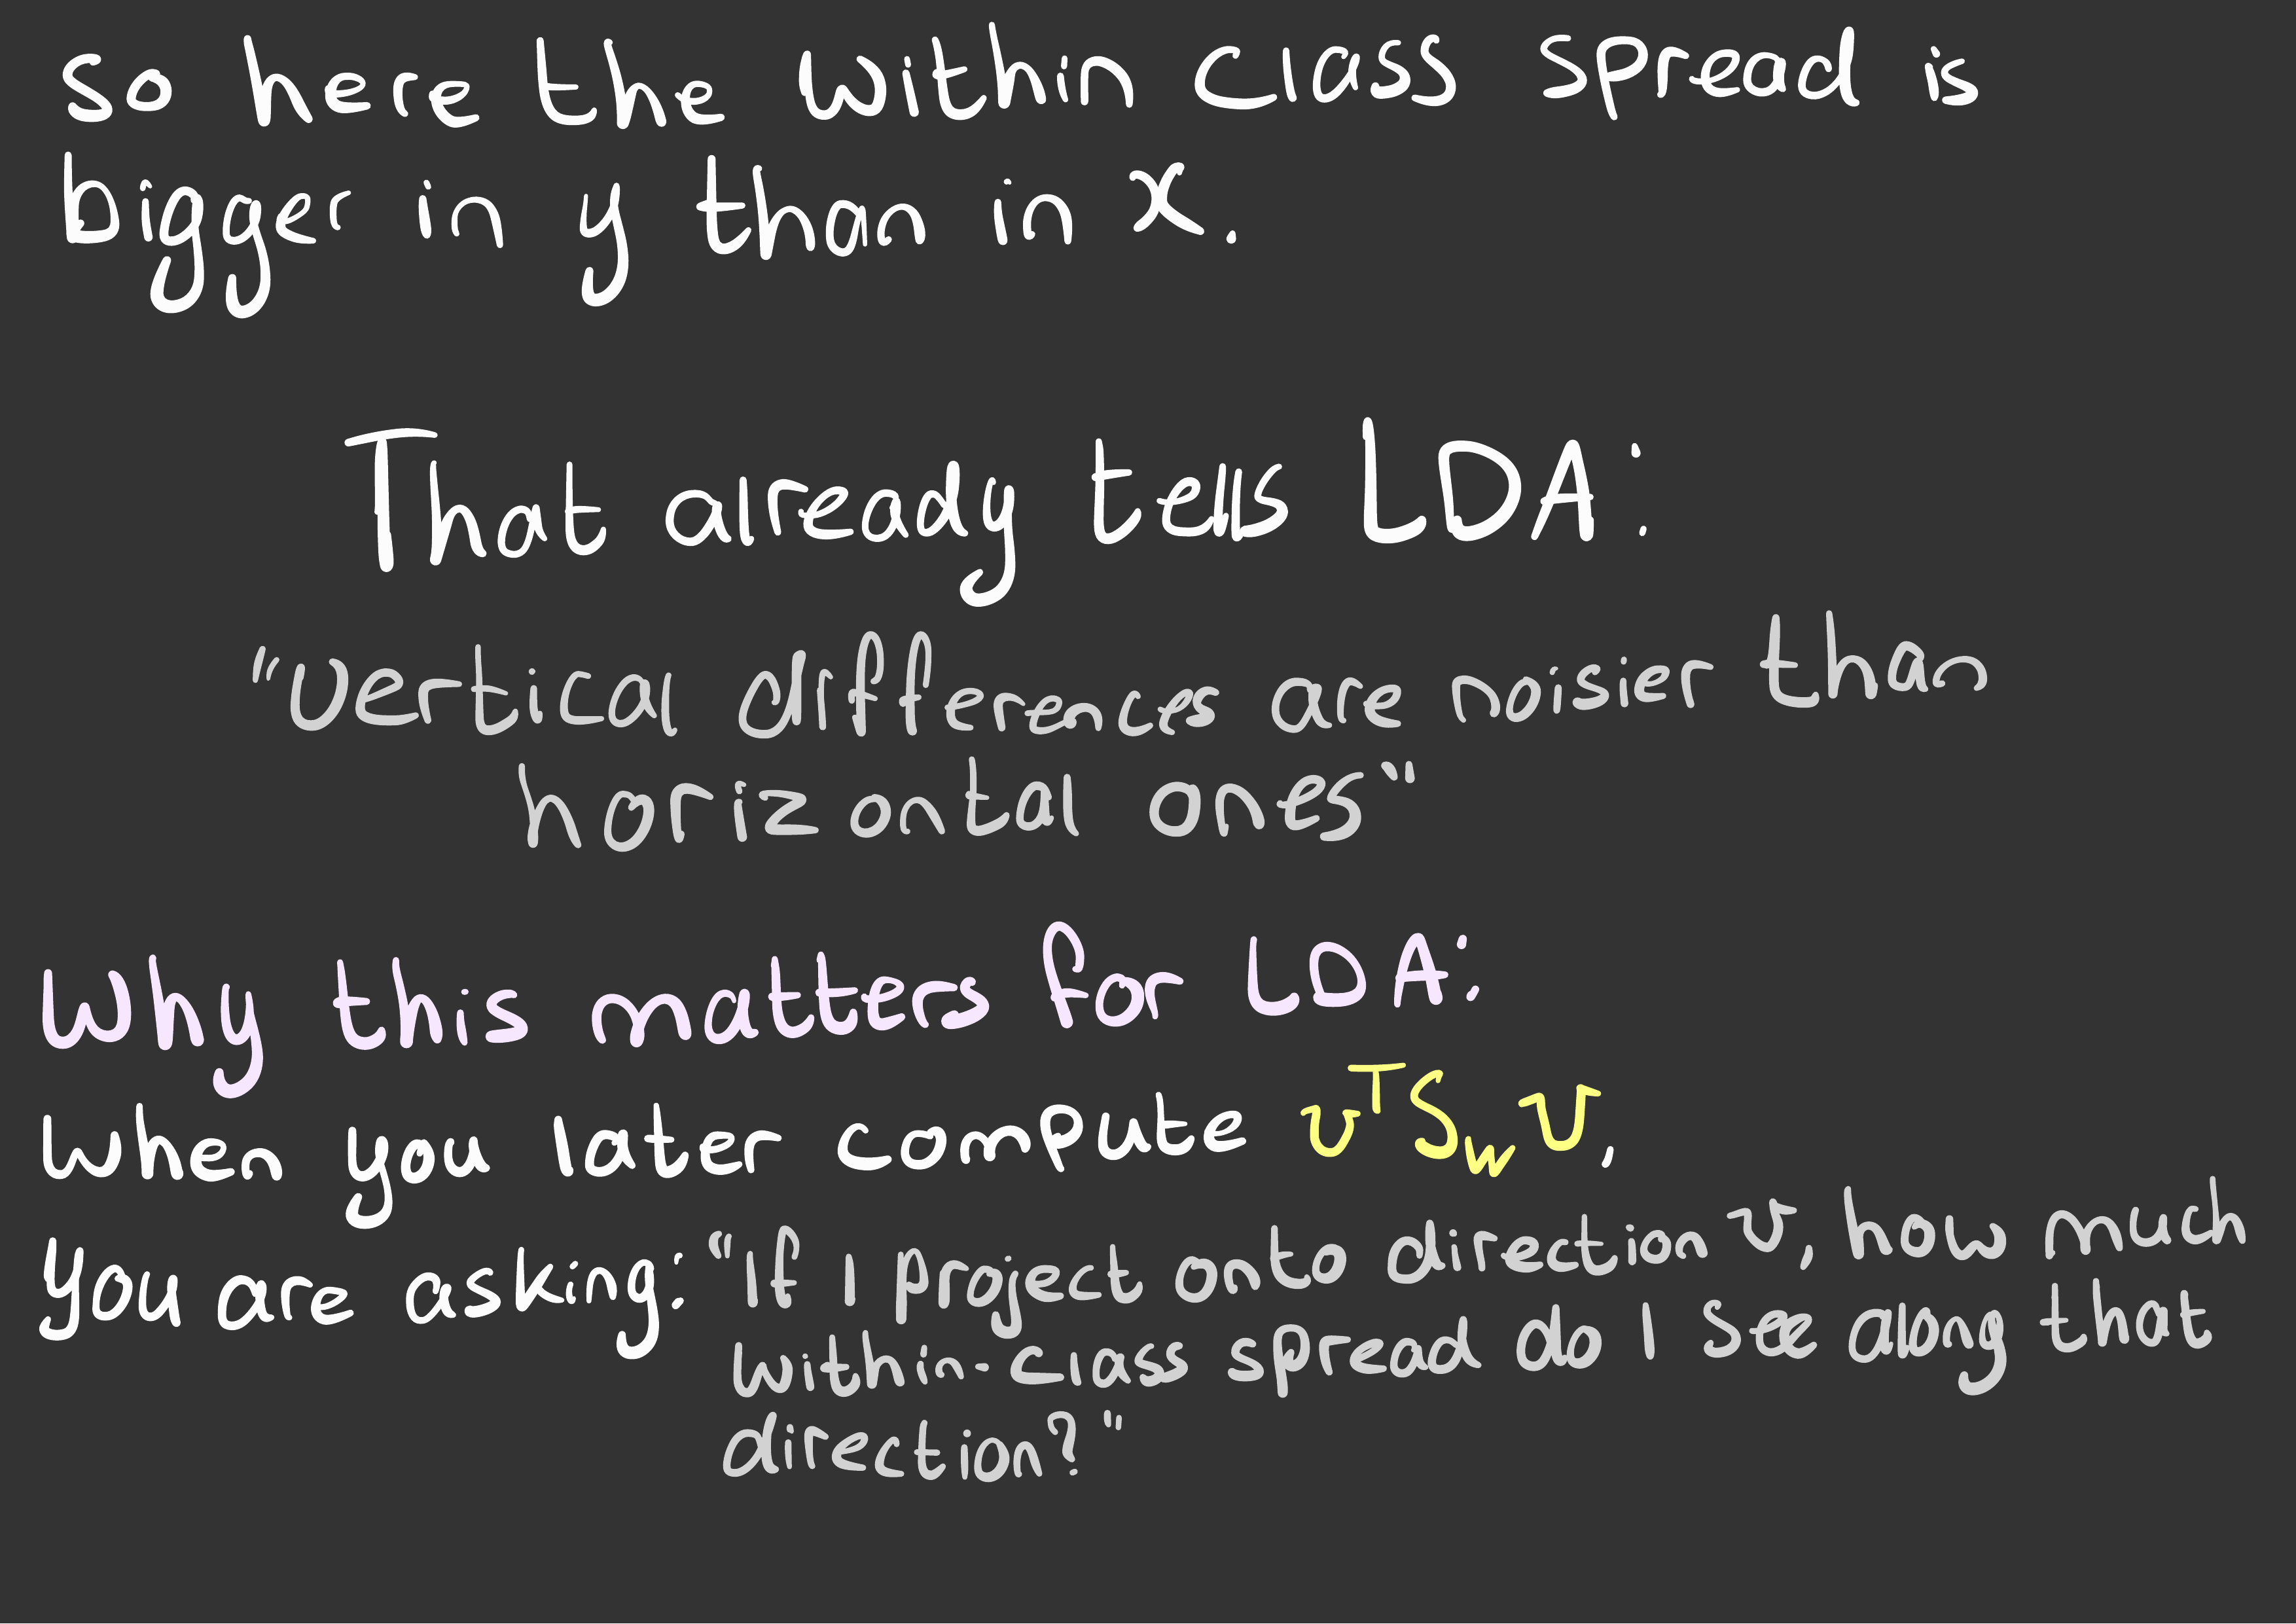 So here the within class spread is
bigger in y than in x.
That already tells LDA:
"vertical differences are noisier than
horizontal ones"
Why this matters for LDA:
when you later compute vᵀS_w v,
you are asking: "If I project onto direction v, how much
within-class spread do I see along that
direction?"